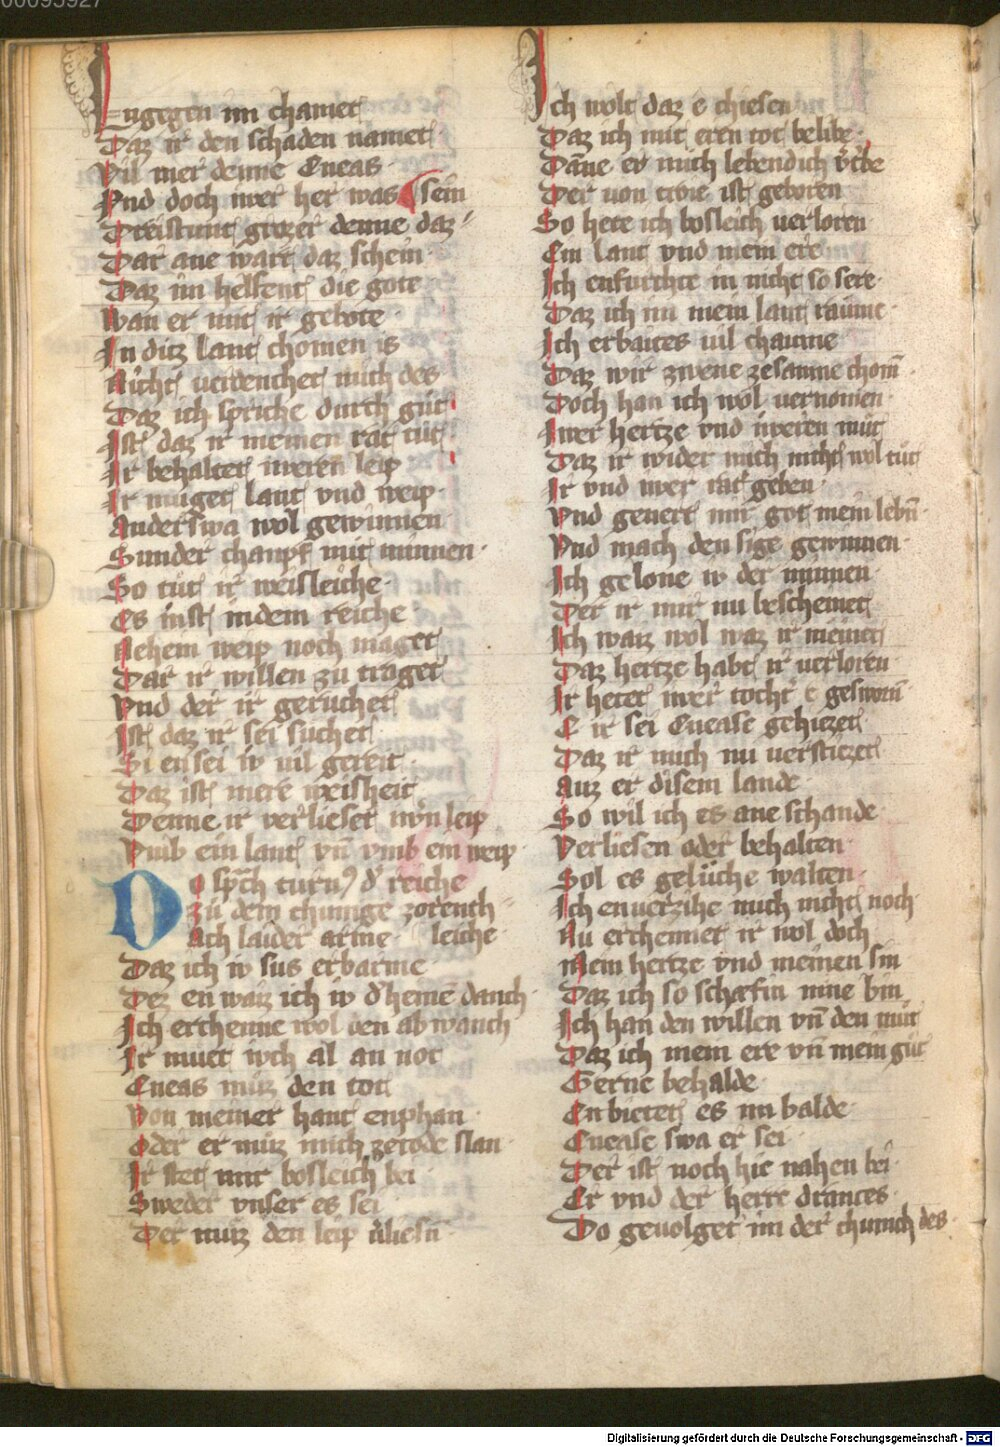 00095927
Engegen im chamet
Daz ir den schaden namet
Vil mer denne Eneas
Vnd doch iwer her was sein
Dreistunt grozer denne daz
Dar ane wart daz schein
Daz im helfent die gote
Wan er mit ir gebote
In ditz lant chomen is
Nicht verdenchet mich des
Daz ich spriche durch gůt
Ist daz ir meinen rat tůt
Ir behaltet iweren leip
Ir muget lant vnd weip
Anderswa wol gewinnen
Sunder champf mit minnen
So tůt ir weisleiche
Es inst indem reiche
Nehein weip noch maget
Dar ir willen zu traget
Vnd der ir geruchet
Ist daz ir sei suchet
Si ensei iv vil gereit
Daz ist mere weisheit
Denne ir verlieset iwͤn leip
Vmb ein lant vn̄ vmb ein weip
Do sprach turnꝰ dͤ reiche
Zů dem chunige zorench
Ach laider arme leiche
Daz ich iv sus erbarme
Dez en waiz ich iv dͤheinē danch
Ich erchenne wol den abwanch
Ir muet iwch al an not
Eneas můz den tot
Von meiner hant enphan
Oder er můz mich zetode slan
Ir stet mir bosleich bei
Sweder vnser es sei
Der můz den leip vͤliesn̄
Ich wolt daz e chiesen
Daz ich mit eren tot belibe
Dāne er mich lebendich vͤtͤbe
Der von troie ist geboren
So hete ich bosleich verloren
Ein lant vnd mein ere
Ich enfurchte in nicht so sere
Daz ich im mein lant raume
Ich erbaites vil chaume
Daz wir zwene zesamne chom̄
Doch han ich wol vernomen
Iwer hertze vnd iweren můt
Daz ir wider mich nicht wol tůt
Ir vnd iwer rat geben
Vnd genert mir got mein lebn̄
Vnd mach den sige gewinnen
Ich gelone iv der minnen
Der ir mir nu bescheinet
Ich waiz wol waz ir meinet
Daz hertze habt ir verloren
Ir hetet iwer tochtͤ e gesworn̄
E ir sei Enease gehiezet
Daz ir mich nu verstiezet
Auz er disem lande
So wil ich es ane schande
Verliesen oder behalten
Sol es gelůche walten
Ich enverzihe mich nicht noch
Nu erchennet ir wol doch
Mein hertze vnd meinen sin
Daz ich so schafin nine bin
Ich han den willen vn̄ den můt
Daz ich mein ere vn̄ mein gůt
Gerne behalde
Enbietet es im balde
Enease swa er sei
Der ist noch hie nahen bei
Er vnd der herre drances
Do gevolget im der chunich des
Digitalisierung gefördert durch die Deutsche Forschungsgemeinschaft - DFG